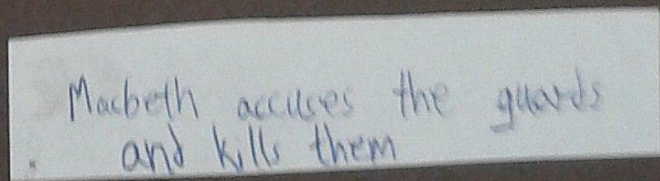 Macbeth accuses the guards
and kills them